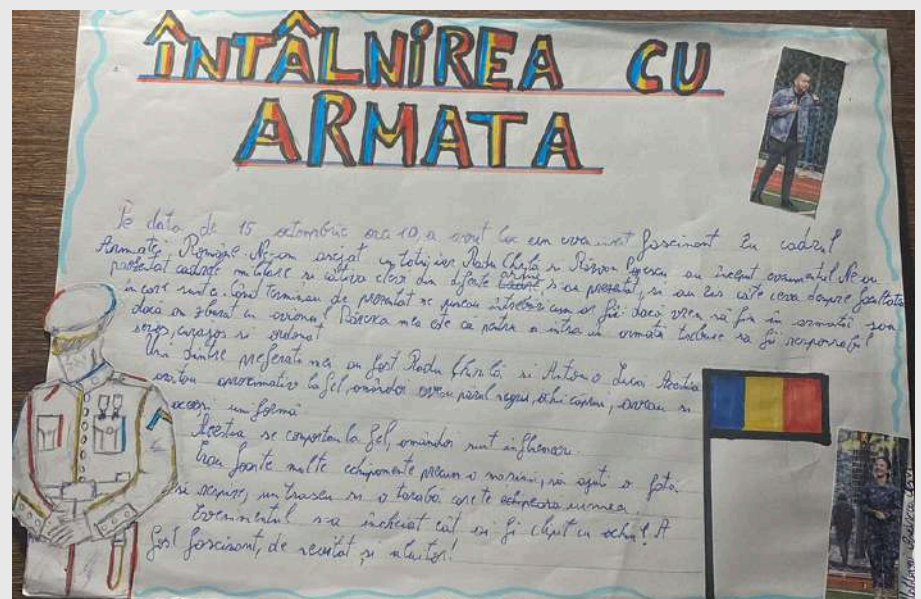 ÎNTÂLNIREA CU
ARMATA
Pe data de 15 octombrie ora 10, a avut loc un eveniment fascinant în cadrul
Armatei Române. Ne-am așezat cu toții, iar Radu Chiriță și Răzvan Popescu au început evenimentul. Ne au
prezentat cadrele militare și câtiva elevi din diferite s-au prezentat, și au zis câte ceva despre facultatea
în care sunt. Când terminau de prezentat ne puneau întrebări cum ar fi: dacă vrem să fim în armată sau
dacă am zburat cu avionul. Părerea mea este că pentru a intra în armată trebuie să fii responsabil
serios, curajos și ordonat
Unii dintre preferații mei au fost Radu și Antonio Luca. Aceștia
arătau aproximativ la fel, amândoi aveau părul negru, ochi căprui, aveau și
aceași uniformă
Aceștia se comportau la fel, amândoi sunt
Erau foarte multe echipamente precum o mașină, să ajuți o fată
să respire, un traseu și o tarabă care te
Evenimentul s-a încheiat cât ai fi clipit cu ochiul! A
fost fascinant, de neuitat și uluitor!